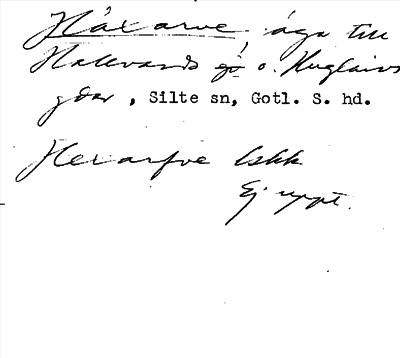 Håxarve, äga till
Hallvards go o. Huglaivs
gdar, Silte sn, Gotl. S. hd.
Hexarfve lskk
Ej uppt.